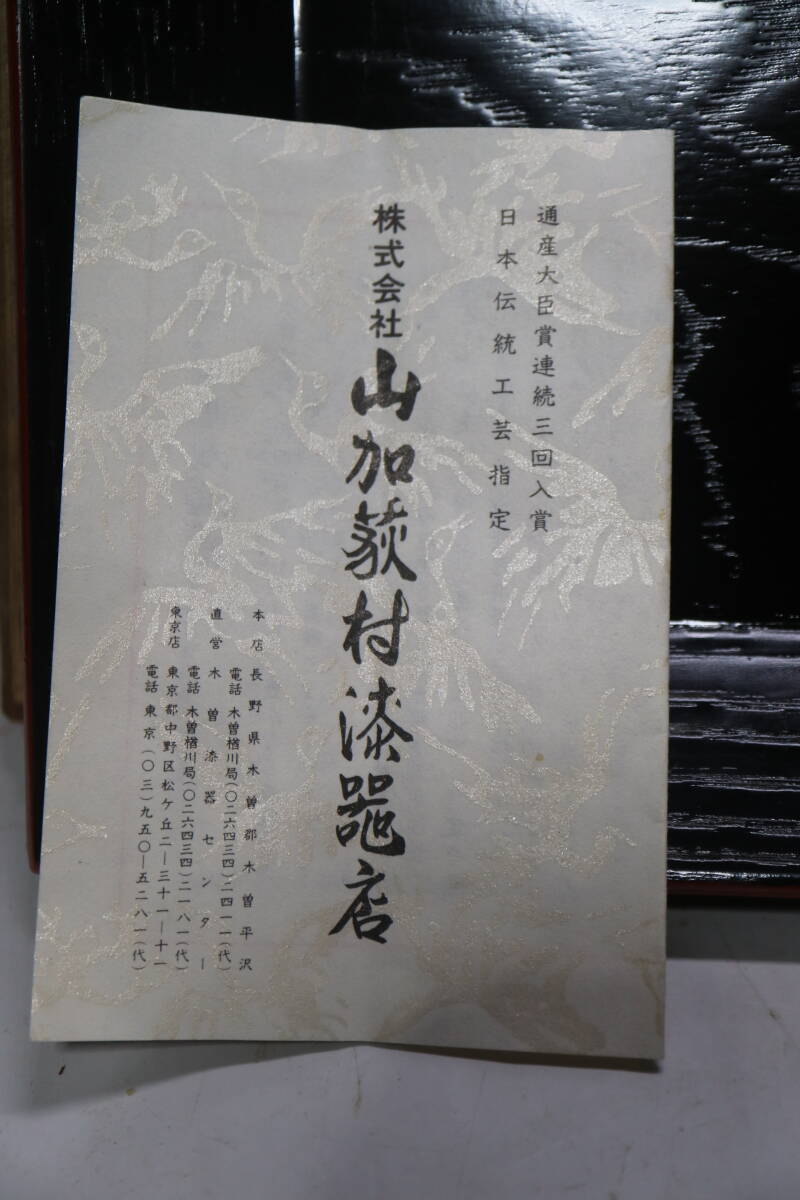 通産大臣賞連続三回入賞
日本伝統工芸指定
株式会社 山加荻村漆器店
本店 長野県木曽郡木曽平沢
電話 木曽楢川局(〇二六四三四)二四一一(代)
直営 木曽漆器センター
電話 木曽楢川局(〇二六四三四)二一八一(代)
東京店 東京都中野区松ケ丘二―三十一―十一
電話 東京(〇三)九五〇―五二八一(代)